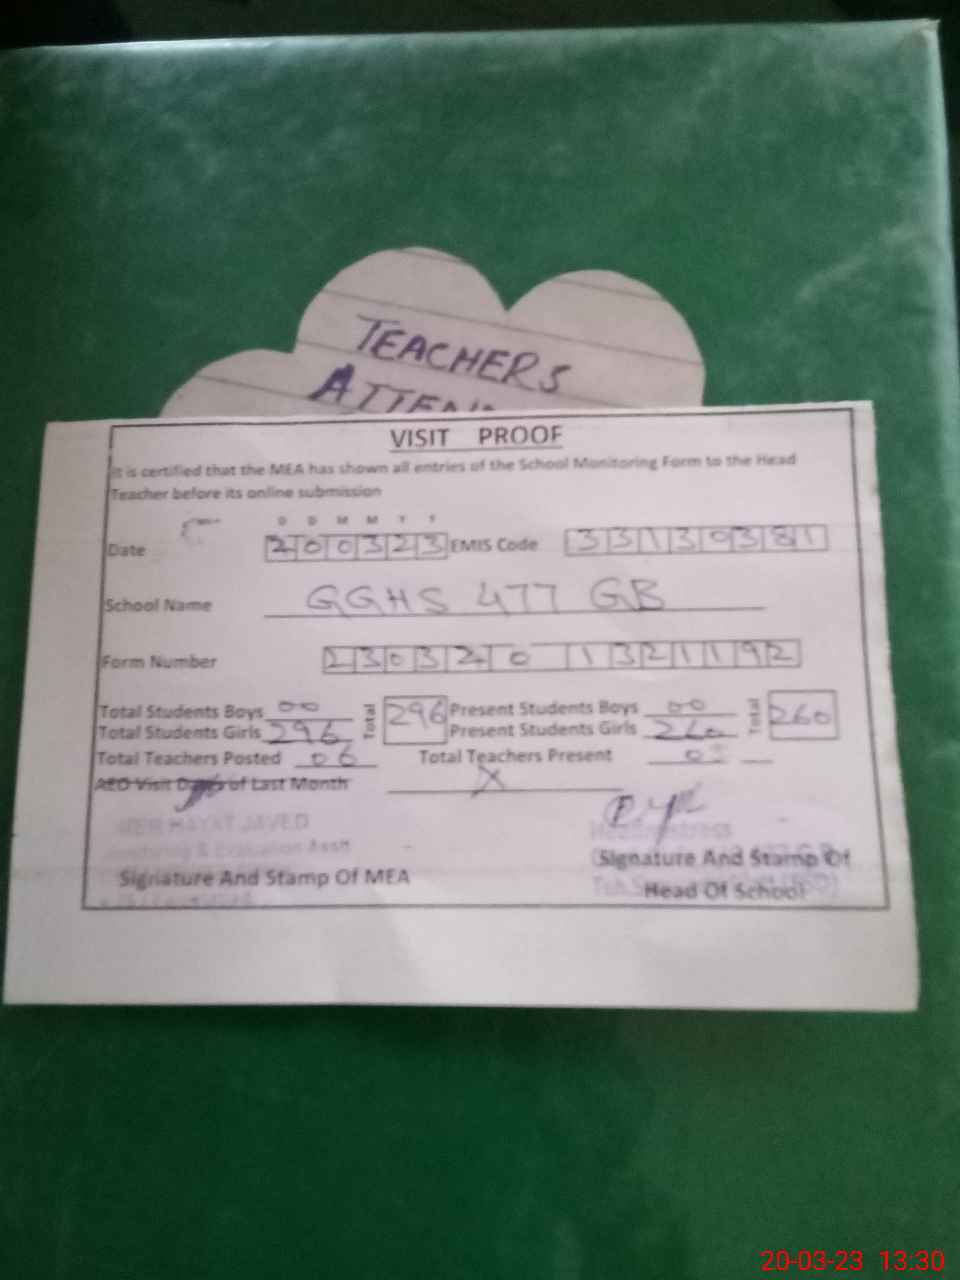 TEACHERS
VISIT PROOF
It is certified that the MEA has shown all entries of the School Monitoring Form to the Head
Teacher before its online submission
D D M M Y Y
Date 200323 EMIS Code 33130381
School Name GGHS 477 GB
Form Number
Total Students Boys 00 Total 296 Present Students Boys 00 Total 260
Total Students Girls 296 Present Students Girls 260
Total Teachers Posted 06 Total Teachers Present
AEO Visit of Last Month X
HAYAT JAVED
Signature And Stamp Of MEA
Signature And Stamp Of
Head Of School
20-03-23 13:30